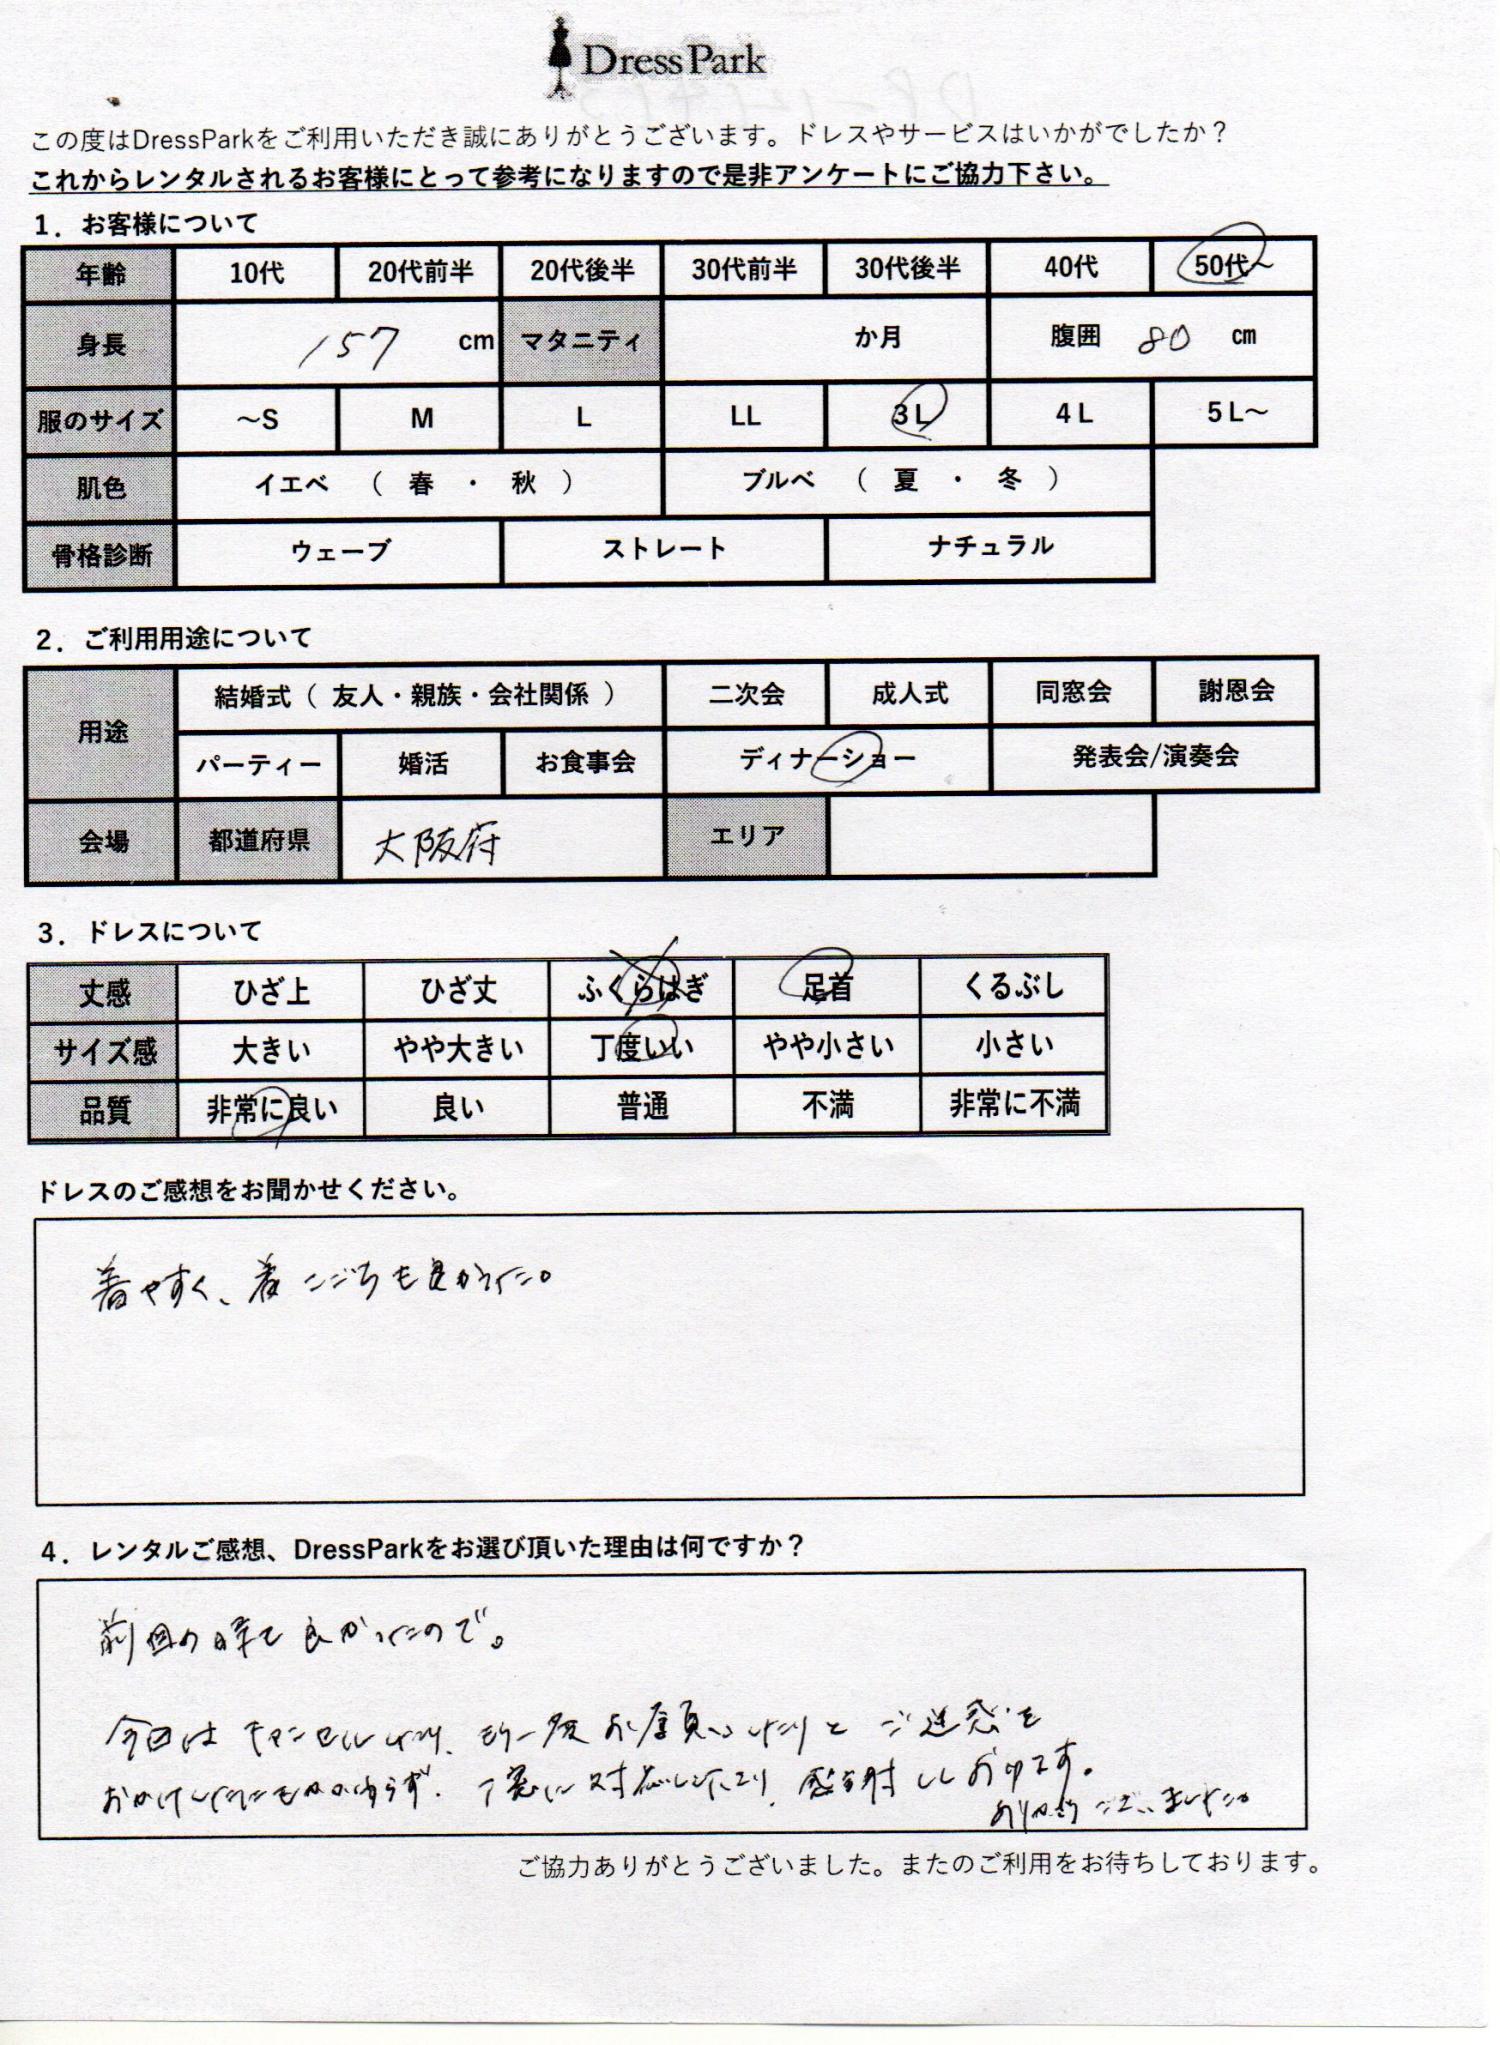 Dress Park
この度はDressParkをご利用いただき誠にありがとうございます。ドレスやサービスはいかがでしたか？
これからレンタルされるお客様にとって参考になりますので是非アンケートにご協力下さい。
1．お客様について
年齢 10代 20代前半 20代後半 30代前半 30代後半 40代 50代～
身長 157 cm マタニティ か月 腹囲 80 cm
服のサイズ ～S M L LL 3L 4L 5L～
肌色 イエベ （ 春 ・ 秋 ） ブルベ （ 夏 ・ 冬 ）
骨格診断 ウェーブ ストレート ナチュラル
2．ご利用用途について
用途 結婚式（ 友人・親族・会社関係 ） 二次会 成人式 同窓会 謝恩会
パーティー 婚活 お食事会 ディナーショー 発表会/演奏会
会場 都道府県 大阪府 エリア
3．ドレスについて
丈感 ひざ上 ひざ丈 ふくらはぎ 足首 くるぶし
サイズ感 大きい やや大きい 丁度いい やや小さい 小さい
品質 非常に良い 良い 普通 不満 非常に不満
ドレスのご感想をお聞かせください。
着やすく、着こごちも良かった。
4．レンタルご感想、DressParkをお選び頂いた理由は何ですか？
前回の時も良かったので。
今回はキャンセルしたり、もう一度お願いしたりとご迷惑を
おかけしたにもかかわらず、丁寧に対応して下さり、感謝しております。
ありがとうございました。
ご協力ありがとうございました。またのご利用をお待ちしております。